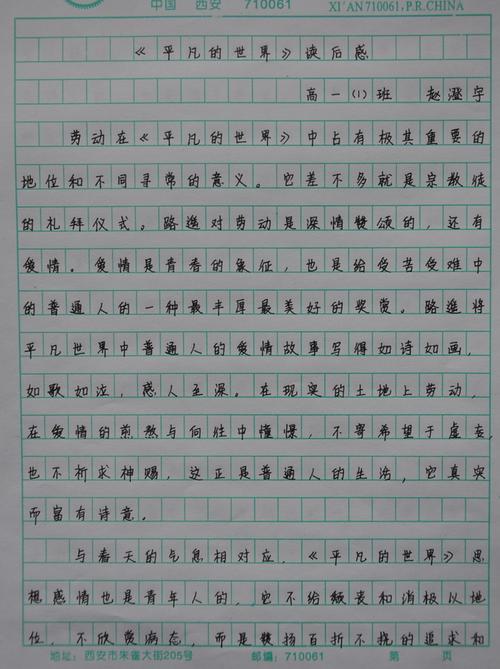 中国 西安 710061 XI'AN710061,P.R.CHINA
《平凡的世界》读后感
高一(1)班 赵滢宇
劳动在《平凡的世界》中占有极其重要的
地位和不同寻常的意义。它差不多就是宗教徒
的礼拜仪式。路遥对劳动是深情赞颂的,还有
爱情。爱情是青春的象征,也是给受苦受难中
的普通人的一种最丰厚最美好的奖赏。路遥将
平凡世界中普通人的爱情故事写得如诗如画,
如歌如泣,感人至深。在现实的土地上劳动,
在爱情的煎熬与向往中憧憬,不寄希望于虚妄,
也不祈求神赐,这正是普通人的生活,它真实
而富有诗意。
与春天的气息相对应,《平凡的世界》思
想感情也是青年人的,它不给颓丧和消极以地
位,不欣赏病态,而是赞扬百折不挠的追求和
地址:西安市朱雀大街205号 邮编:710061 第 页